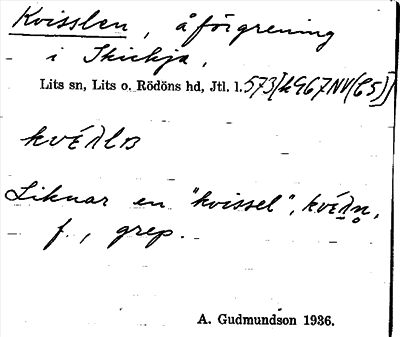 Kvisslen, åförgrening
i Skickja,
Lits sn, Lits o. Rödöns hd, Jtl. l. 573/kG67NV(C5)]
kvéλlɒ
Liknar en "kvissel", kvéλn̥,
f., grep.
A. Gudmundson 1936.